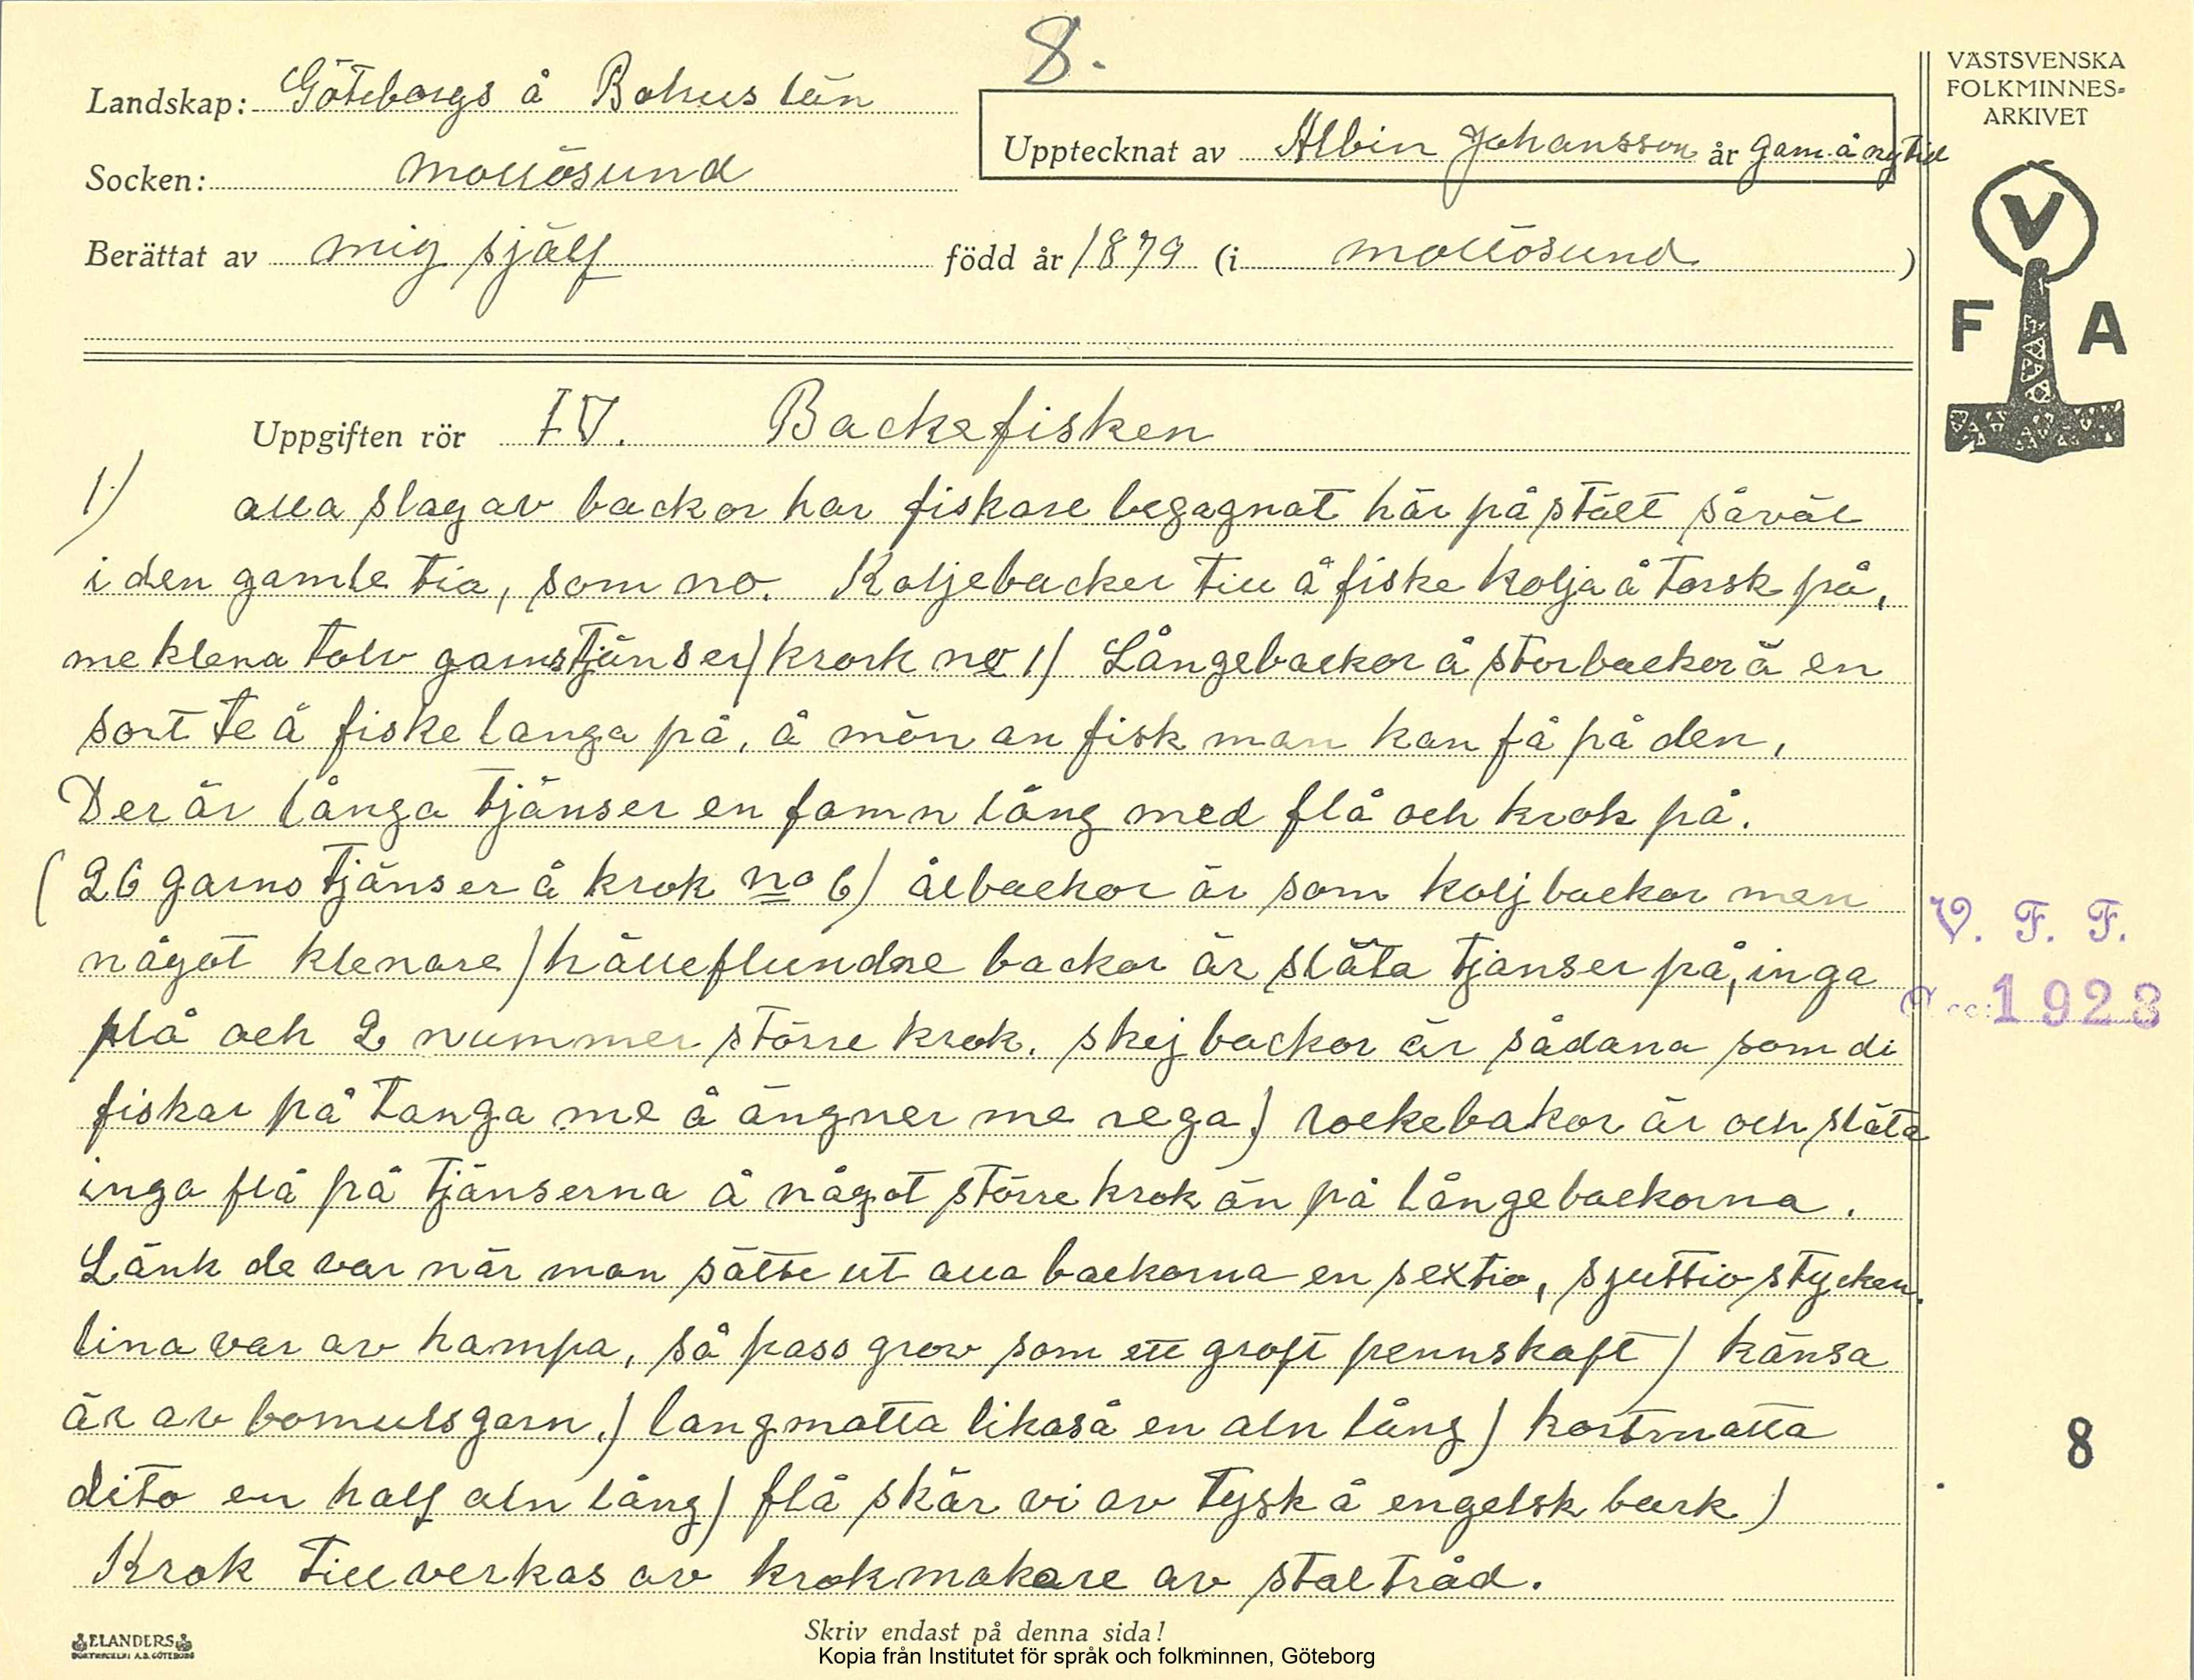 8.
Landskap: Göteborgs å Bohus län
VÄSTSVENSKA
FOLKMINNES-
ARKIVET
Upptecknat av Albin Johansson år gam. å ny tid
Socken: mollösund
Berättat av mig själf född år 1879 (i mollösund)
V
F A
Uppgiften rör IV. Backefisken
1) alla slag av backor har fiskare begagnat här på stält såväl
i den gamle tia, som no. Koljebacker till å fiske kolja å torsk på,
me klena tolv garnstjänser) krork no 1) Långebackor å storbackor ä en
sort te å fiske langa på, å mön an fisk man kan få på den,
Der är långa tjänser en famn lång med flå och krok på.
(26 garns tjänser å krok no 6) ålbackor är som koljbackor men
något klenare) hälleflundre backor är släta tjänser på, inga
flå och 2 nummer större krok. skejbackor är sådana som di
fiskar på tanga me å ängner me rega.) rockebakor är och släta
inga flå på tjänserna å något större krok än på långebackorna.
Länk de var när man sätte ut alla backorna en sextio, sjuttio stycken.
lina var av hampa, så pass grov som ett groft pennskaft) känsa
är av bomulsgarn.) langmatta likaså en aln lång) kortmatta
dito en half aln lång) flå skär vi av tysk å engelsk bark)
Krok tillverkas av krokmakare av ståltråd.
V. F. F.
1923
8
ELANDERS
Skriv endast på denna sida!
Kopia från Institutet för språk och folkminnen, Göteborg